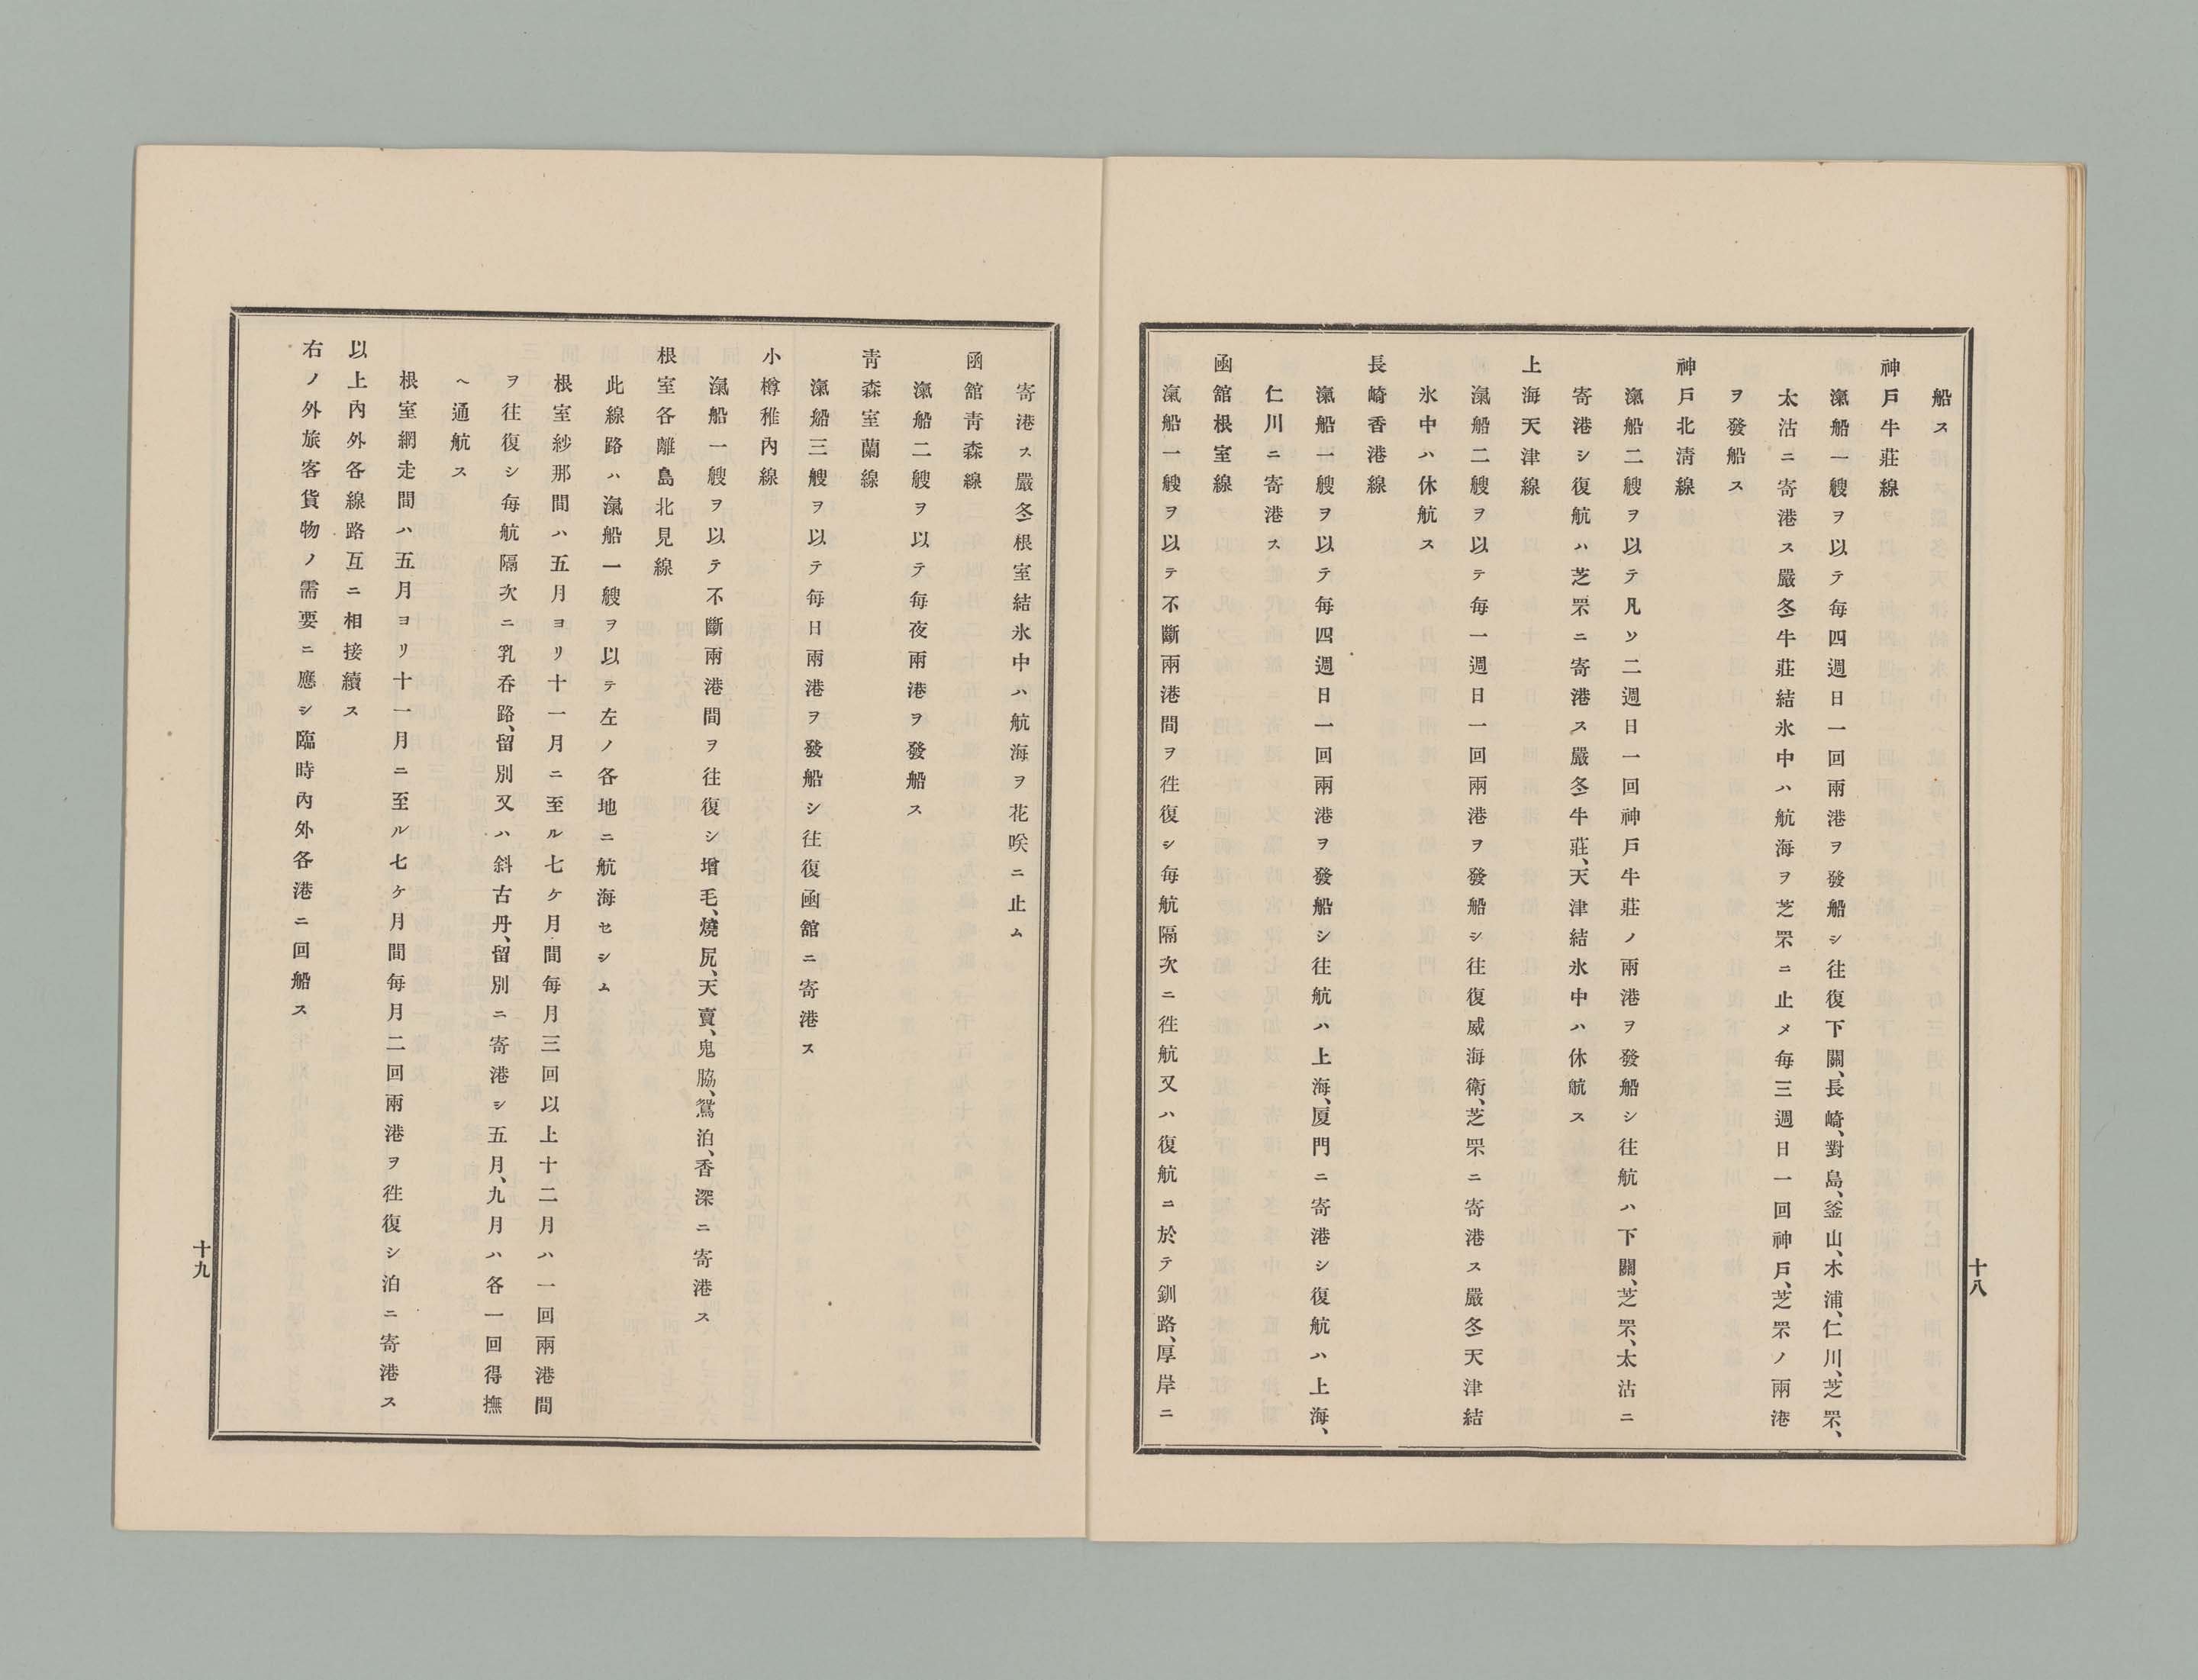 船ス
神戶牛莊線
滊船一艘ヲ以テ每四週日一回兩港ヲ發船シ往復下關、長崎、對島、釜山、木浦、仁川、芝罘、
太沽ニ寄港ス嚴冬牛莊結氷中ハ航海ヲ芝罘ニ止メ每三週日一回神戶、芝罘ノ兩港
ヲ發船ス
神戶北淸線
滊船二艘ヲ以テ凡ソ二週日一回神戶牛莊ノ兩港ヲ發船シ往航ハ下關、芝罘、太沽ニ
寄港シ復航ハ芝罘ニ寄港ス嚴冬牛莊、天津結氷中ハ休航ス
上海天津線
滊船二艘ヲ以テ每一週日一回兩港ヲ發船シ往復威海衛、芝罘ニ寄港ス嚴冬天津結
氷中ハ休航ス
長崎香港線
滊船一艘ヲ以テ每四週日一回兩港ヲ發船シ往航ハ上海、厦門ニ寄港シ復航ハ上海、
仁川ニ寄港ス
函舘根室線
滊船一艘ヲ以テ不斷兩港間ヲ徃復シ每航隔次ニ徃航又ハ復航ニ於テ釧路、厚岸ニ
十八
寄港ス嚴冬根室結氷中ハ航海ヲ花咲ニ止ム
函舘靑森線
滊船二艘ヲ以テ每夜兩港ヲ發船ス
靑森室蘭線
滊船三艘ヲ以テ每日兩港ヲ發船シ往復函舘ニ寄港ス
小樽稚內線
滊船一艘ヲ以テ不斷兩港間ヲ往復シ增毛、燒尻、天賣、鬼脇、鴛泊、香深ニ寄港ス
根室各離島北見線
此線路ハ滊船一艘ヲ以テ左ノ各地ニ航海セシム
根室紗那間ハ五月ヨリ十一月ニ至ル七ケ月間每月三回以上十二月ハ一回兩港間
ヲ往復シ每航隔次ニ乳呑路、留別又ハ斜古丹、留別ニ寄港シ五月、九月ハ各一回得撫
ヘ通航ス
根室網走間ハ五月ヨリ十一月ニ至ル七ケ月間每月二回兩港ヲ徃復シ泊ニ寄港ス
以上內外各線路互ニ相接續ス
右ノ外旅客貨物ノ需要ニ應シ臨時內外各港ニ回船ス
十九